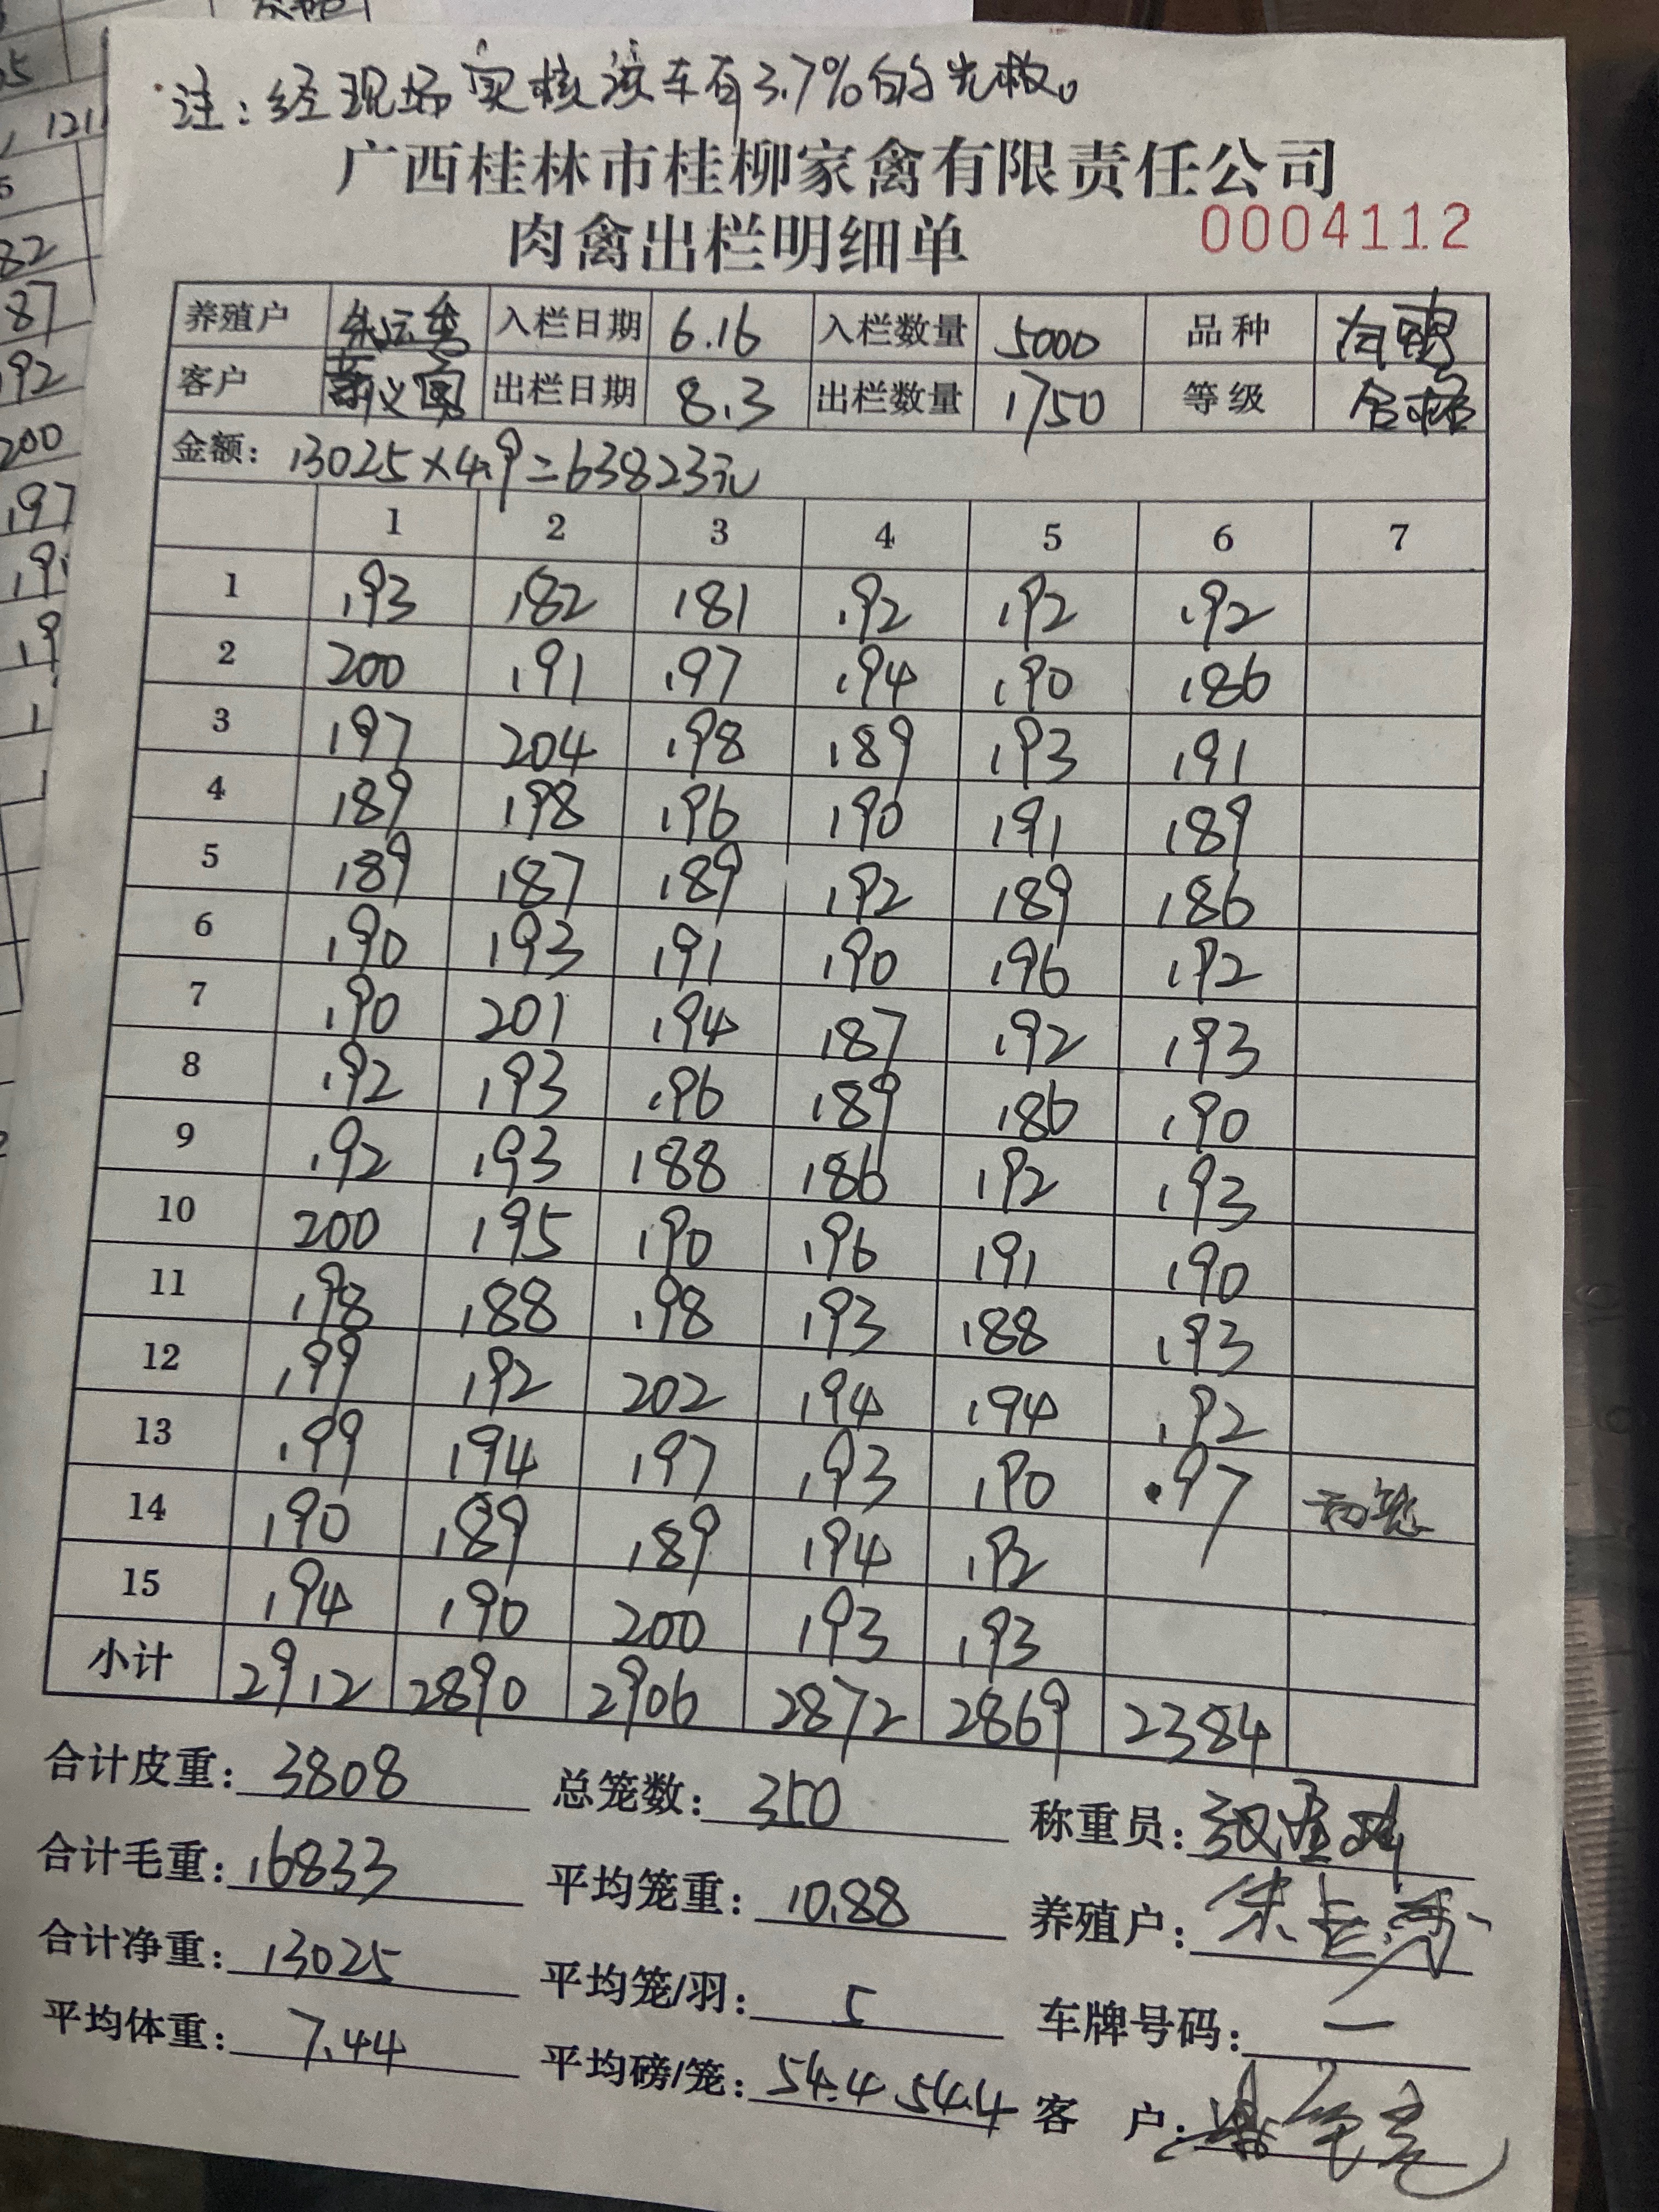 注：经现场实核该车有3.7%的光板。
广西桂林市桂柳家禽有限责任公司
肉禽出栏明细单 0004112
养殖户 朱运秀 入栏日期 6.16 入栏数量 5000 品种 白鸭
客户 出栏日期 8.3 出栏数量 1750 等级 合格
金额：13025×4.9=63823元
1 2 3 4 5 6 7
1 193 182 181 192 192 192
2 200 191 197 194 190 186
3 197 204 198 189 193 191
4 189 198 196 190 191 189
5 189 187 189 192 189 186
6 190 193 191 190 196 192
7 190 201 194 187 192 193
8 192 193 196 189 186 190
9 192 193 188 186 192 193
10 200 195 190 196 191 190
11 198 188 198 193 188 193
12 199 192 202 194 194 192
13 199 194 197 193 190 97
14 190 189 189 194 192
15 194 190 200 193 193
小计 2912 2890 2906 2872 2869 2384
合计皮重：3808 总笼数：350 称重员：
合计毛重：16833 平均笼重：10.88 养殖户：朱运秀
合计净重：13025 平均笼/羽：5 车牌号码：一
平均体重：7.44 平均磅/笼：54.4 54.4 客 户：